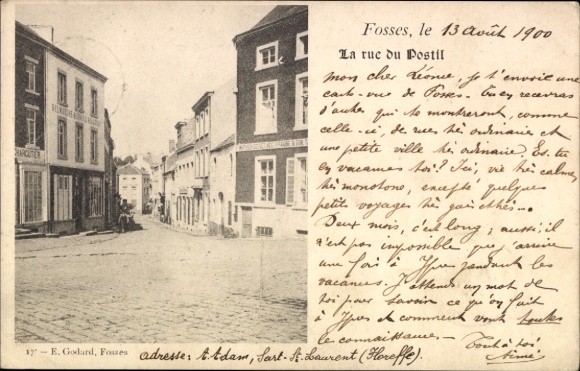 Fosses, le 13 Août 1900
La rue du Postil
mon cher Léonce, je t'envoie une
carte-vue de Fosses. Tu en recevras
d'autres qui te montreront, comme
celle-ci, de rues très ordinaire et
une petite ville très ordinaire. Es-tu
en vacances toi? Ici, vie très calme,
très monotone, excepté quelques
petits voyages très
Deux mois, c'est long; aussi, il
n'est pas impossible que j'arrive
une fois à Ypres pendant les
vacances. J'attends un mot de
toi pour savoir ce qu'on fait
à Ypres et comment vont toutes
le connaissances — Tout à toi
Aimé
CHARCUTIER
17 — E. Godard, Fosses
Adresse: A. Adam, Sart-St-Laurent (Floreffe).